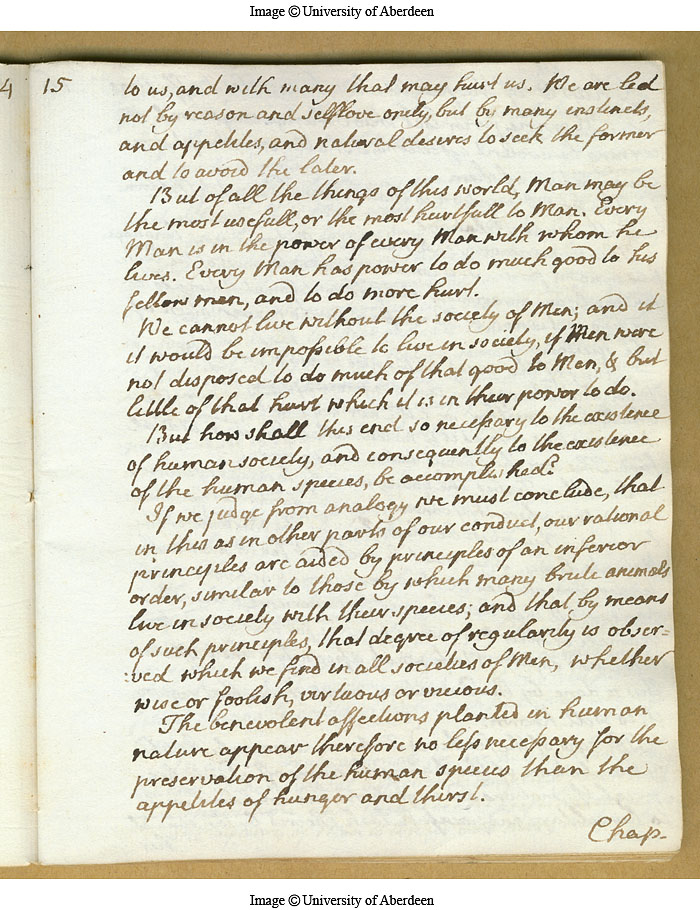 Image © University of Aberdeen
4
15
to us, and with many that may hurt us. We are led
not by reason and selflove only, but by many instincts,
and appetites, and natural desires to seek the former
and to avoid the later.
But of all the things of this world, Man may be
the most usefull, or the most hurtfull to Man. Every
Man is in the power of every Man with whom he
lives. Every Man has power to do much good to his
fellow men, and to do more hurt.
We cannot live without the society of Men; and it
it would be impossible to live in society, if Men were
not disposed to do much of that good to Men, & but
little of that hurt which it is in their power to do.
But how shall this end so necessary to the existence
of human society, and consequently to the existence
of the human species, be accomplished?
If we judge from analogy we must conclude, that
in this as in other parts of our conduct, our rational
principles are aided by principles of an inferior
order, similar to those by which many brute animals
live in society with their species; and that, by means
of such principles, that degree of regularity is obser=
:ved which we find in all societies of Men, whether
wise or foolish, virtuous or vicious.
The benevolent affections planted in human
nature appear therefore no less necessary for the
preservation of the human species than the
appetites of hunger and thirst.
Chap.
Image © University of Aberdeen